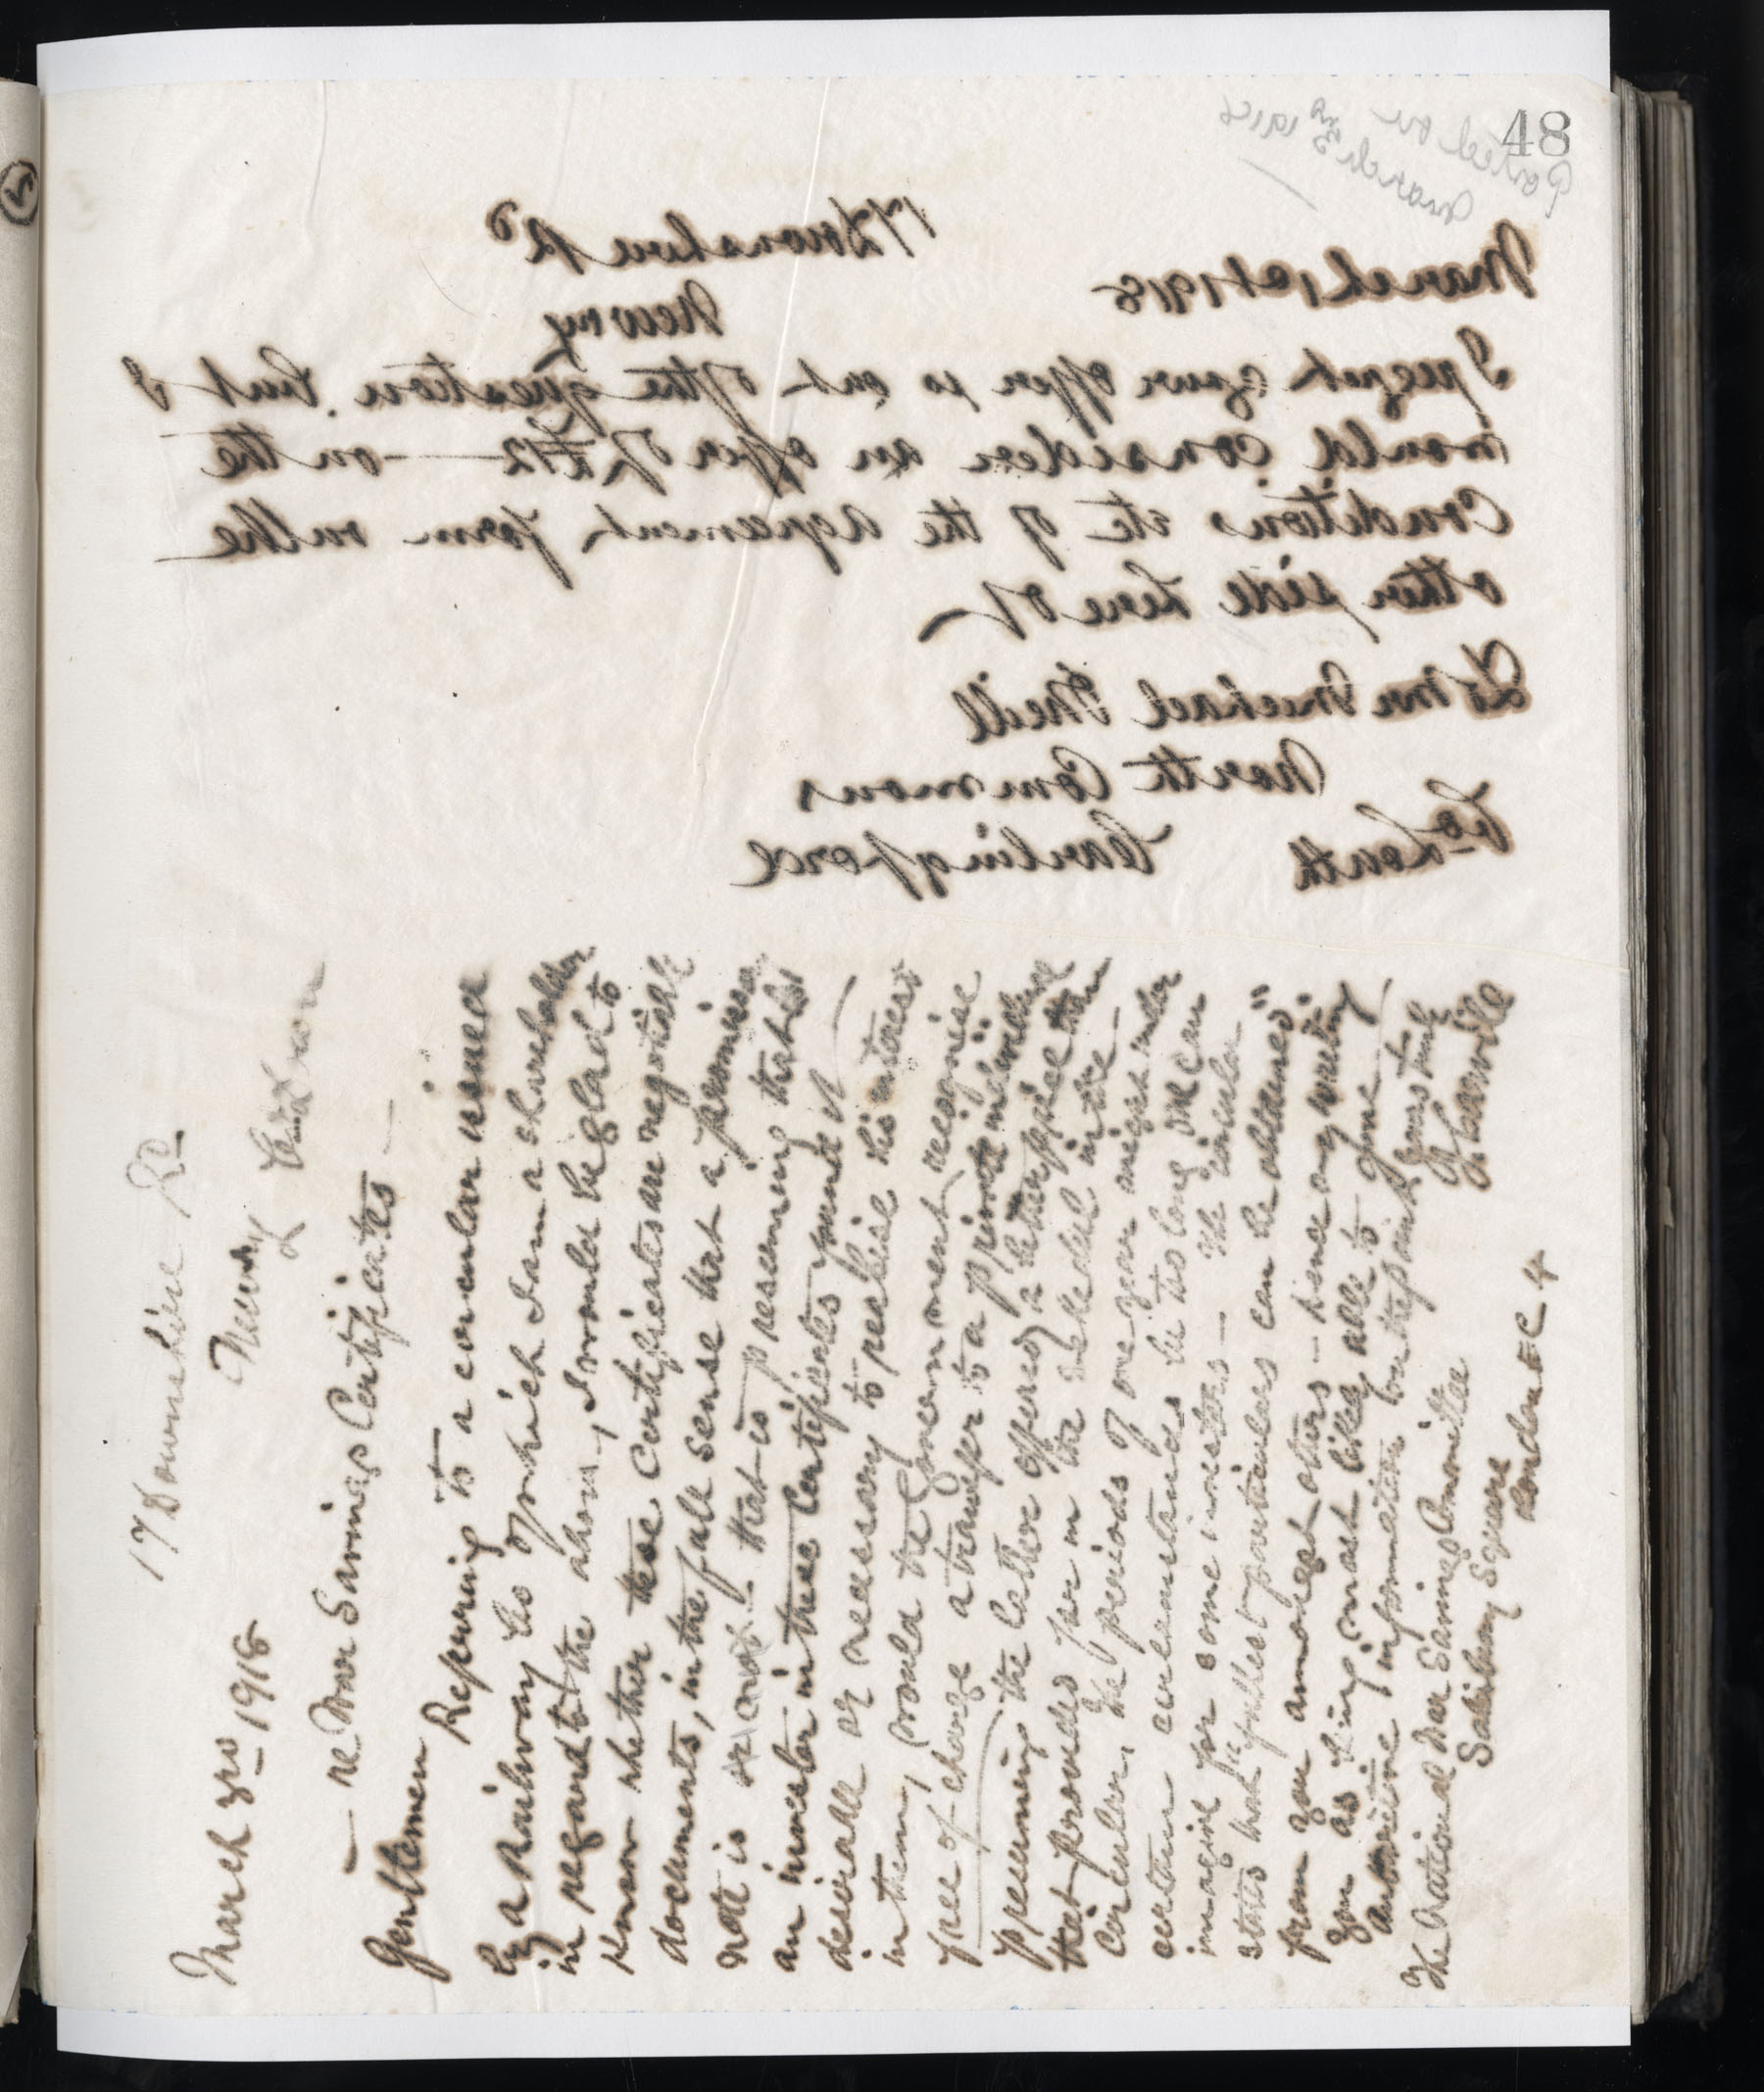 48
Posted on
March 2nd 1918
17 Downshire Rd
March 1st 1918
Newry
I regret your offer is out of the question. But I
would consider an offer of £12 — on the
conditions etc of the agreement form on the
other side hereof —
To Mr Michael Neill
North Commons
Co. Louth Carlingford
17 Downshire Rd
March 3rd 1918 Newry Ireland
— re War Savings Certificates —
Gentlemen Referring to a circular issued
by a Railway Co of which I am a shareholder
in regard to the above, I would be glad to
know whether these Certificates are negotiable
documents, in the full sense that a promissory
note is or not — that is presuming that
an investor in these Certificates found it
desirable or necessary to realise his interest
in them, would the Government recognise
free of charge a transfer to a private individual
presuming the latter offered a better price than
that provided for in the schedule in the
Circular, the periods of one year might under
certain circumstances be too long one can
imagine for some investors — the circular
states that "fullest particulars can be obtained"
from you amongst others — hence my writing
you as being most likely able to give
authoritative information on this point
The National War Savings Committee Yours truly
Salisbury Square
London EC 4